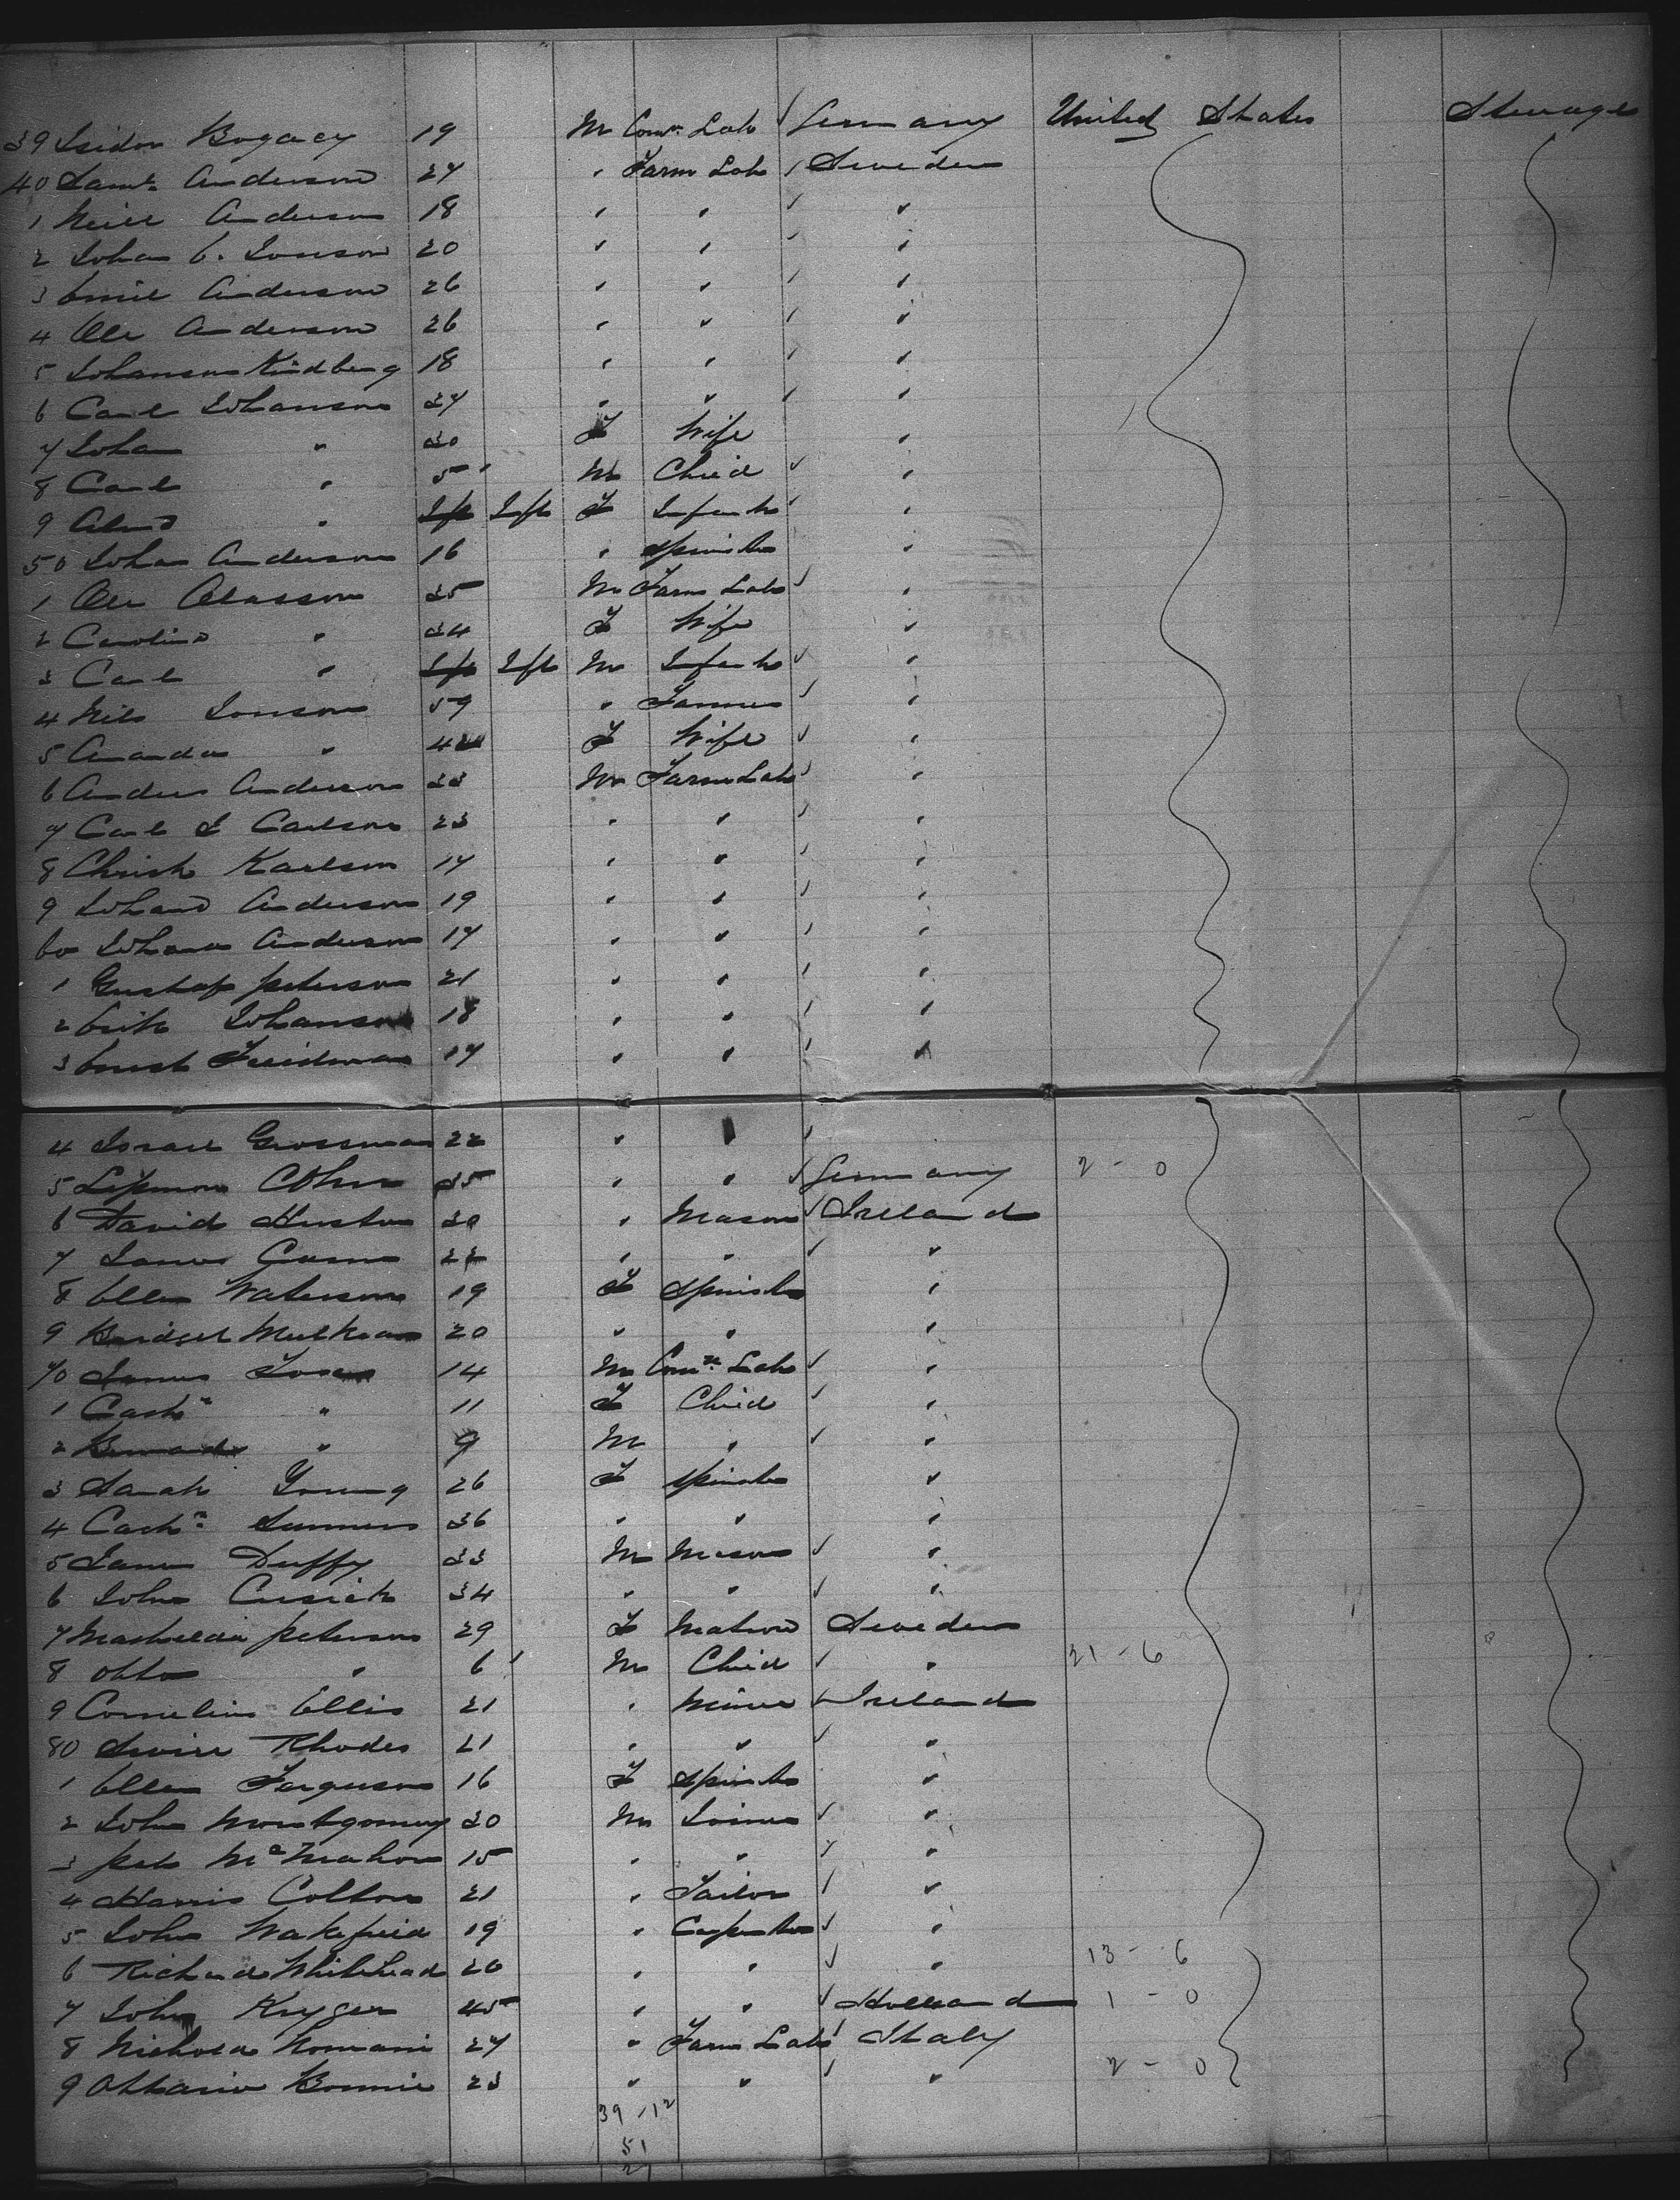 39 Isidor Bogacy 19 M Comn. Lab ✓ Germany United States Steerage
40 Saml. Anderson 27 " Farm Lab ✓ Sweden
1 Neill Anderson 18 " " ✓ "
2 Johan C. Jonson 20 " " ✓ "
3 Emil Anderson 26 " " ✓ "
4 Ole Anderson 26 " " ✓ "
5 Johanson Kindberg 18 " " ✓ "
6 Carl Johanson 27 " " ✓ "
7 Johan " 30 F Wife "
8 Carl " 5 M Child ✓ "
9 " Inft Inft F Infant ✓ "
50 Johan Anderson 16 " Spinster "
1 Ole Olasson 35 M Farm Lab ✓ "
2 Carolina " 34 F Wife "
3 Carl " Inft Inft M Infant ✓ "
4 Nils Jonson 59 " Farmer ✓ "
5 Amanda " F Wife ✓ "
6 Anders Anderson 33 M Farm Lab ✓ "
7 Carl J Carlson 23 " " ✓ "
8 Christ Karlson 17 " " ✓ "
9 Johan Anderson 19 " " ✓ "
60 Johan Anderson 17 " " ✓ "
1 Gustaf Peterson 21 " " ✓ "
2 Erik Johanson 18 " " ✓ "
3 Ernst Freidman 17 " " ✓ "
4 Israel Grossman 22 " " ✓
5 Lipman Cohn 35 " " ✓ Germany 2 - 0
6 David Huston 30 " Mason ✓ Ireland
7 James 22 " " ✓ "
8 Ellen Waterson 19 F Spinster "
9 Bridget Mulkean 20 " " "
70 James 14 M Comn. Lab ✓ "
1 Cathn " 11 F Child ✓ "
2 Bernard " 9 M " ✓ "
3 Sarah Young 26 F Spinster "
4 Cathn. Summers 36 " " "
5 James Duffy 33 M Mason ✓ "
6 John Cusick 34 " " ✓ "
7 Mathilda Peterson 29 F Matron Sweden
8 Otto " 6 M Child ✓ " 21 - 6
9 Cornelius Ellis 21 " Miner ✓ Ireland
80 Swire Rhodes 21 " " ✓ "
1 Ellen Ferguson 16 F Spinster "
2 John Montgomery 30 M Joiner ✓ "
3 Pat McMahon 15 " " ✓ "
4 Harris Colton 21 " Tailor ✓ "
5 John Wakefield 19 " Carpenter ✓ "
6 Richard Whitehead 20 " " ✓ " 13 - 6
7 John Kryger 45 " " ✓ Holland 1 - 0
8 Nichola Romani 27 " Farm Lab ✓ Italy
9 Ottavio Bonnie 23 " " ✓ " 2 - 0
39 - 12
51